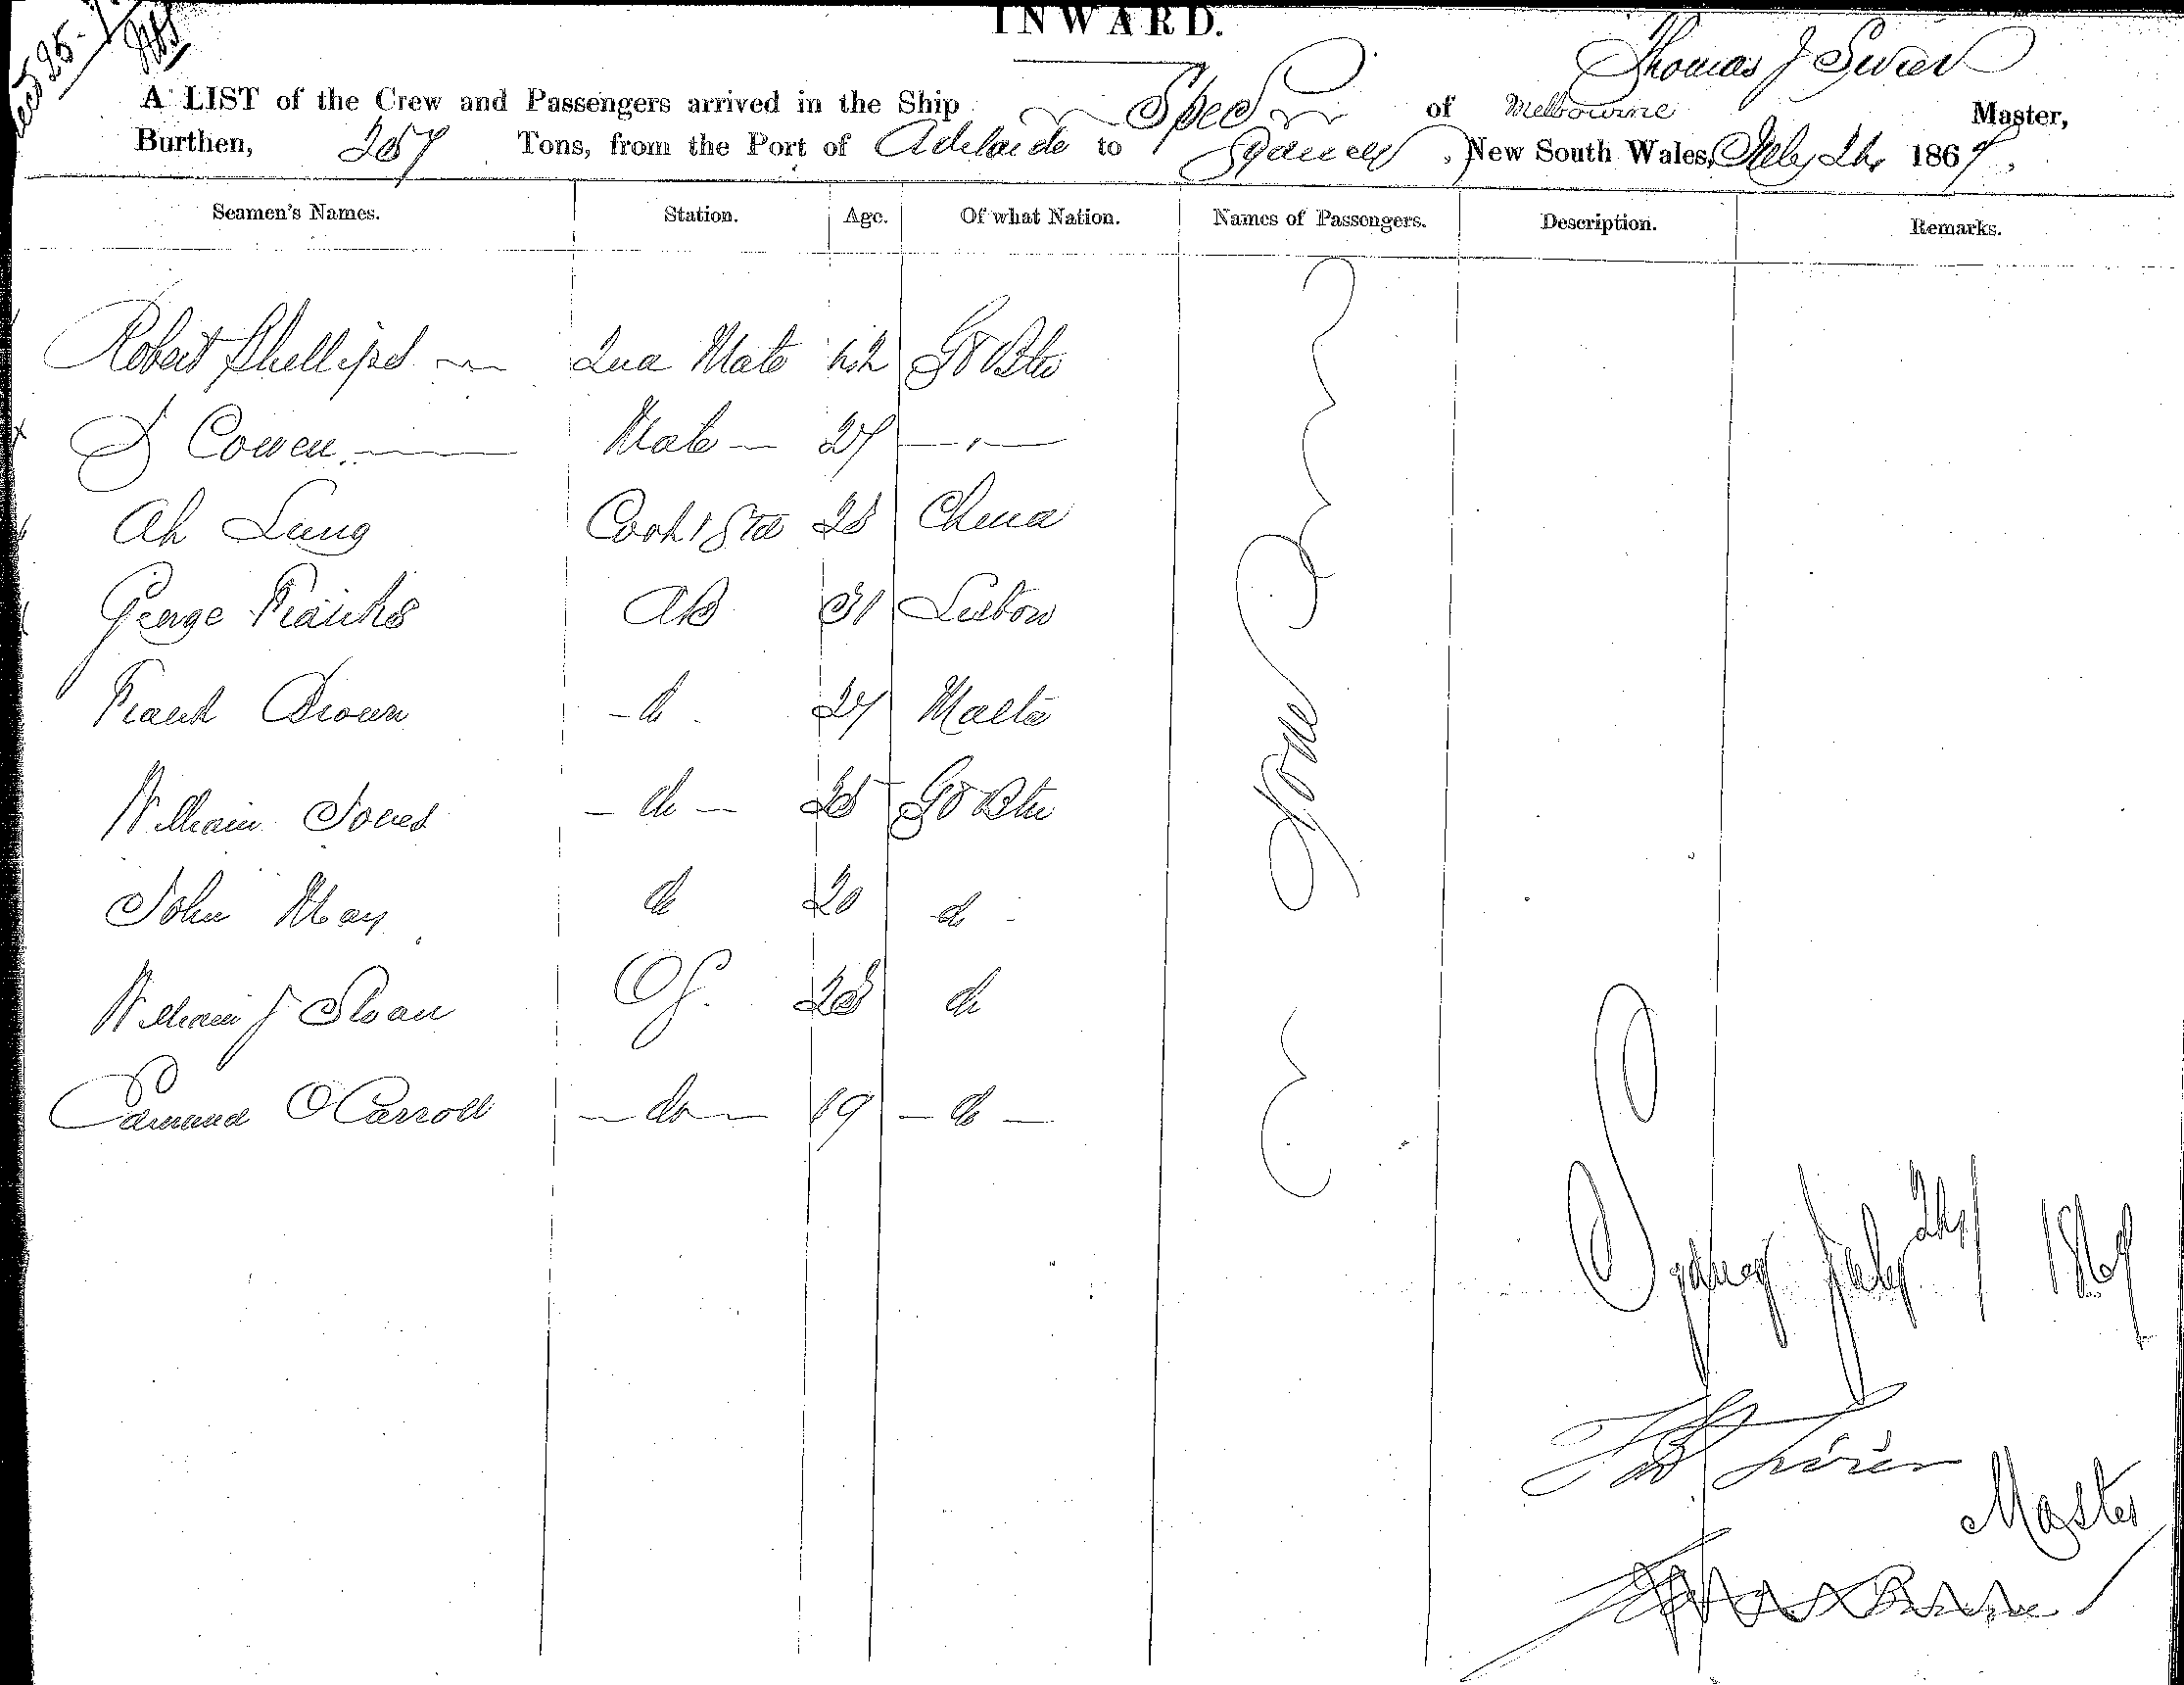 INWARD.
Thomas J
A LIST of the Crew and Passengers arrived in the Ship Spec of Melbourne Master,
Burthen, 257 Tons, from the Port of Adelaide to Sydney, New South Wales, July 24 1869.
Seamen's Names. Station. Age. Of what Nation. Names of Passengers. Description. Remarks.
Robert Phillips Mate 42 Gt Btn
Cowen Mate 27 — " —
Ah Lung Cook & Std 28 China
George Franks AB 31 Lisbon
Frank Brown - do 24 Malta
William Jones - do - 25 Gt Btn
John May do 20 do -
William J Sloan OS. 28 do
Edmund O Carroll - do - 19 - do -
None
Sydney July 24 1869
Master